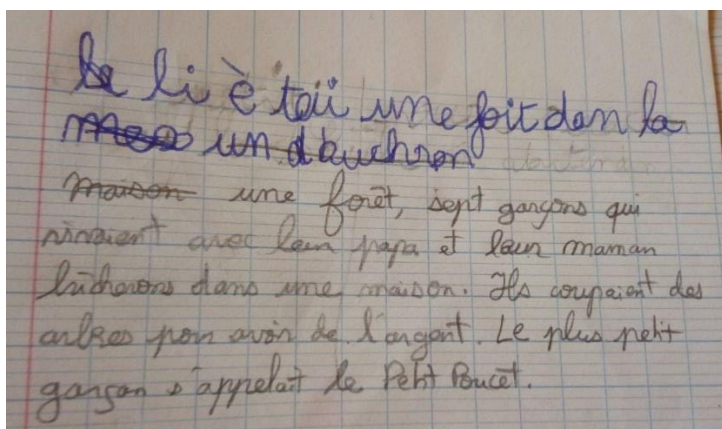 li è taii une foit dan la
un dbuchron
maison une forêt, sept garçons qui
vivaient avec leur papa et leur maman
bûcherons dans une maison. Ils coupaient des
arbres pour avoir de l'argent. Le plus petit
garçon s'appelait le Petit Poucet.